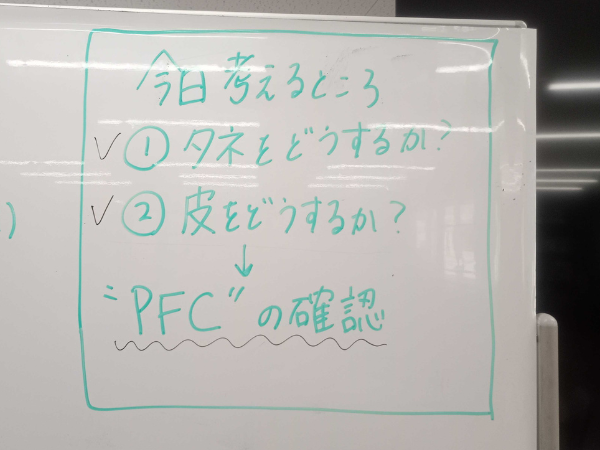 今日考えるところ
✓ ① タネをどうするか?
✓ ② 皮をどうするか?
↓
"PFC"の確認
)